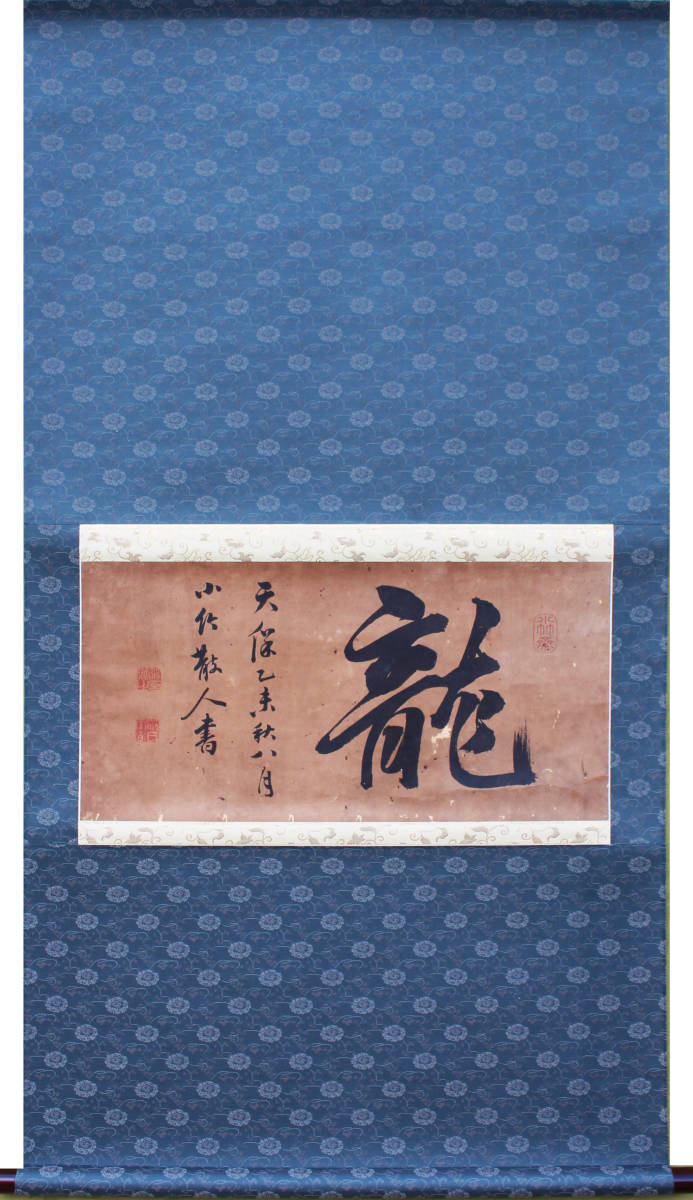 龍
天保乙未秋八月
小竹散人書